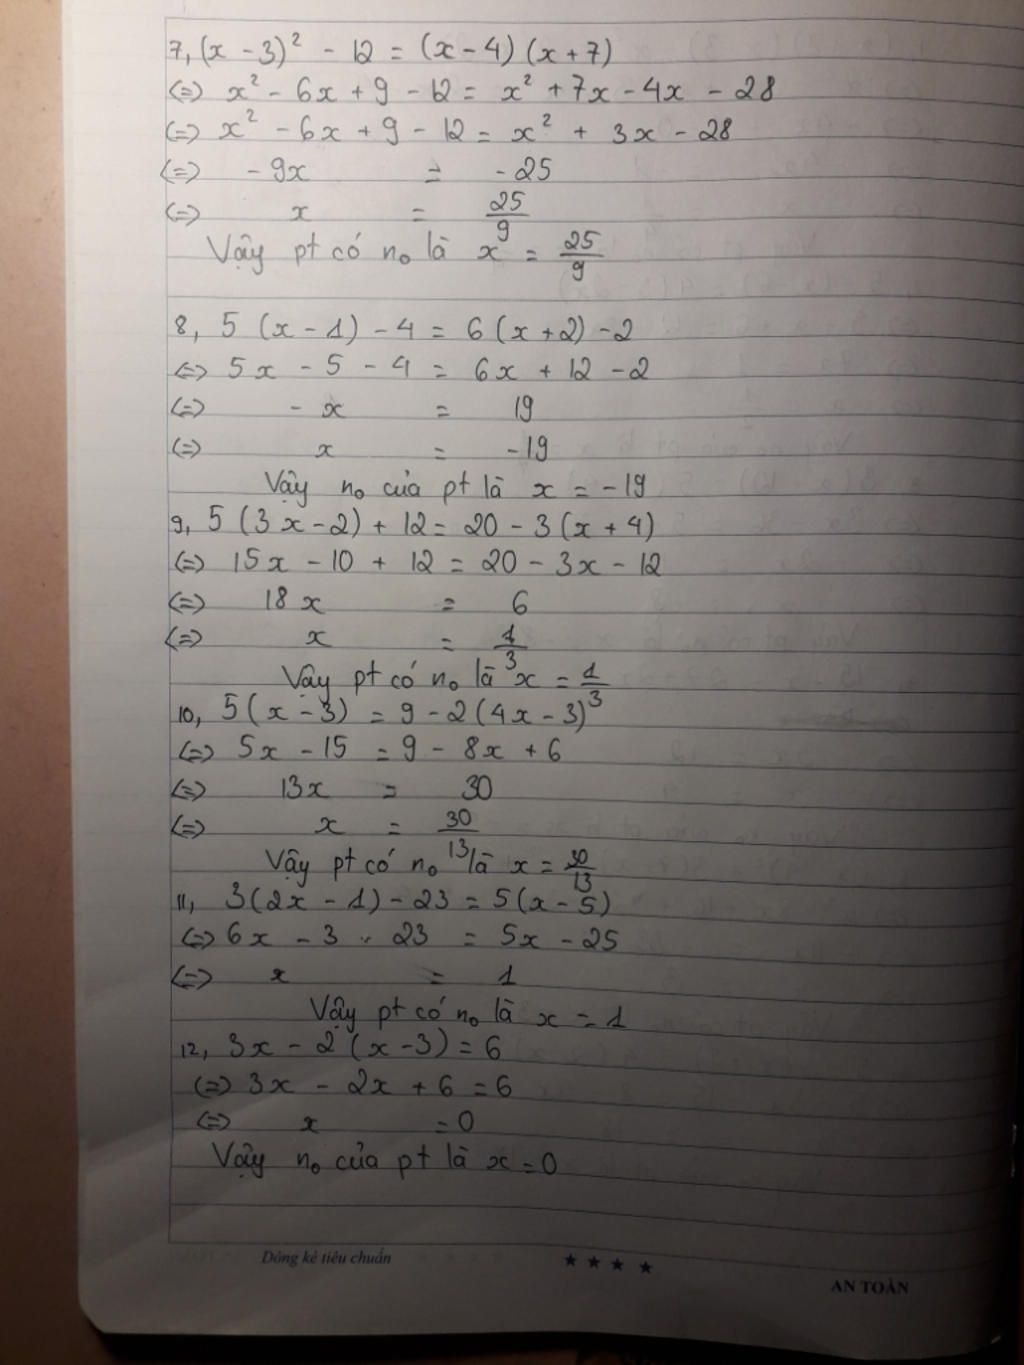 7, (x - 3)² - 12 = (x - 4) (x + 7)
<=> x² - 6x + 9 - 12 = x² + 7x - 4x - 28
<=> x² - 6x + 9 - 12 = x² + 3x - 28
<=> - 9x = - 25
<=> x = 25/9
Vậy pt có n₀ là x = 25/9
8, 5 (x - 1) - 4 = 6 (x + 2) - 2
<=> 5x - 5 - 4 = 6x + 12 - 2
<=> - x = 19
<=> x = -19
Vậy n₀ của pt là x = -19
9, 5 (3x - 2) + 12 = 20 - 3 (x + 4)
<=> 15x - 10 + 12 = 20 - 3x - 12
<=> 18x = 6
<=> x = 1/3
Vậy pt có n₀ là x = 1/3
10, 5 (x - 3) = 9 - 2 (4x - 3)
<=> 5x - 15 = 9 - 8x + 6
<=> 13x = 30
<=> x = 30/13
Vậy pt có n₀ là x = 30/13
11, 3(2x - 1) - 23 = 5(x - 5)
<=> 6x - 3 - 23 = 5x - 25
<=> x = 1
Vậy pt có n₀ là x = 1
12, 3x - 2 (x - 3) = 6
<=> 3x - 2x + 6 = 6
<=> x = 0
Vậy n₀ của pt là x = 0
Dòng kẻ tiêu chuẩn ★ ★ ★ ★
AN TOÀN